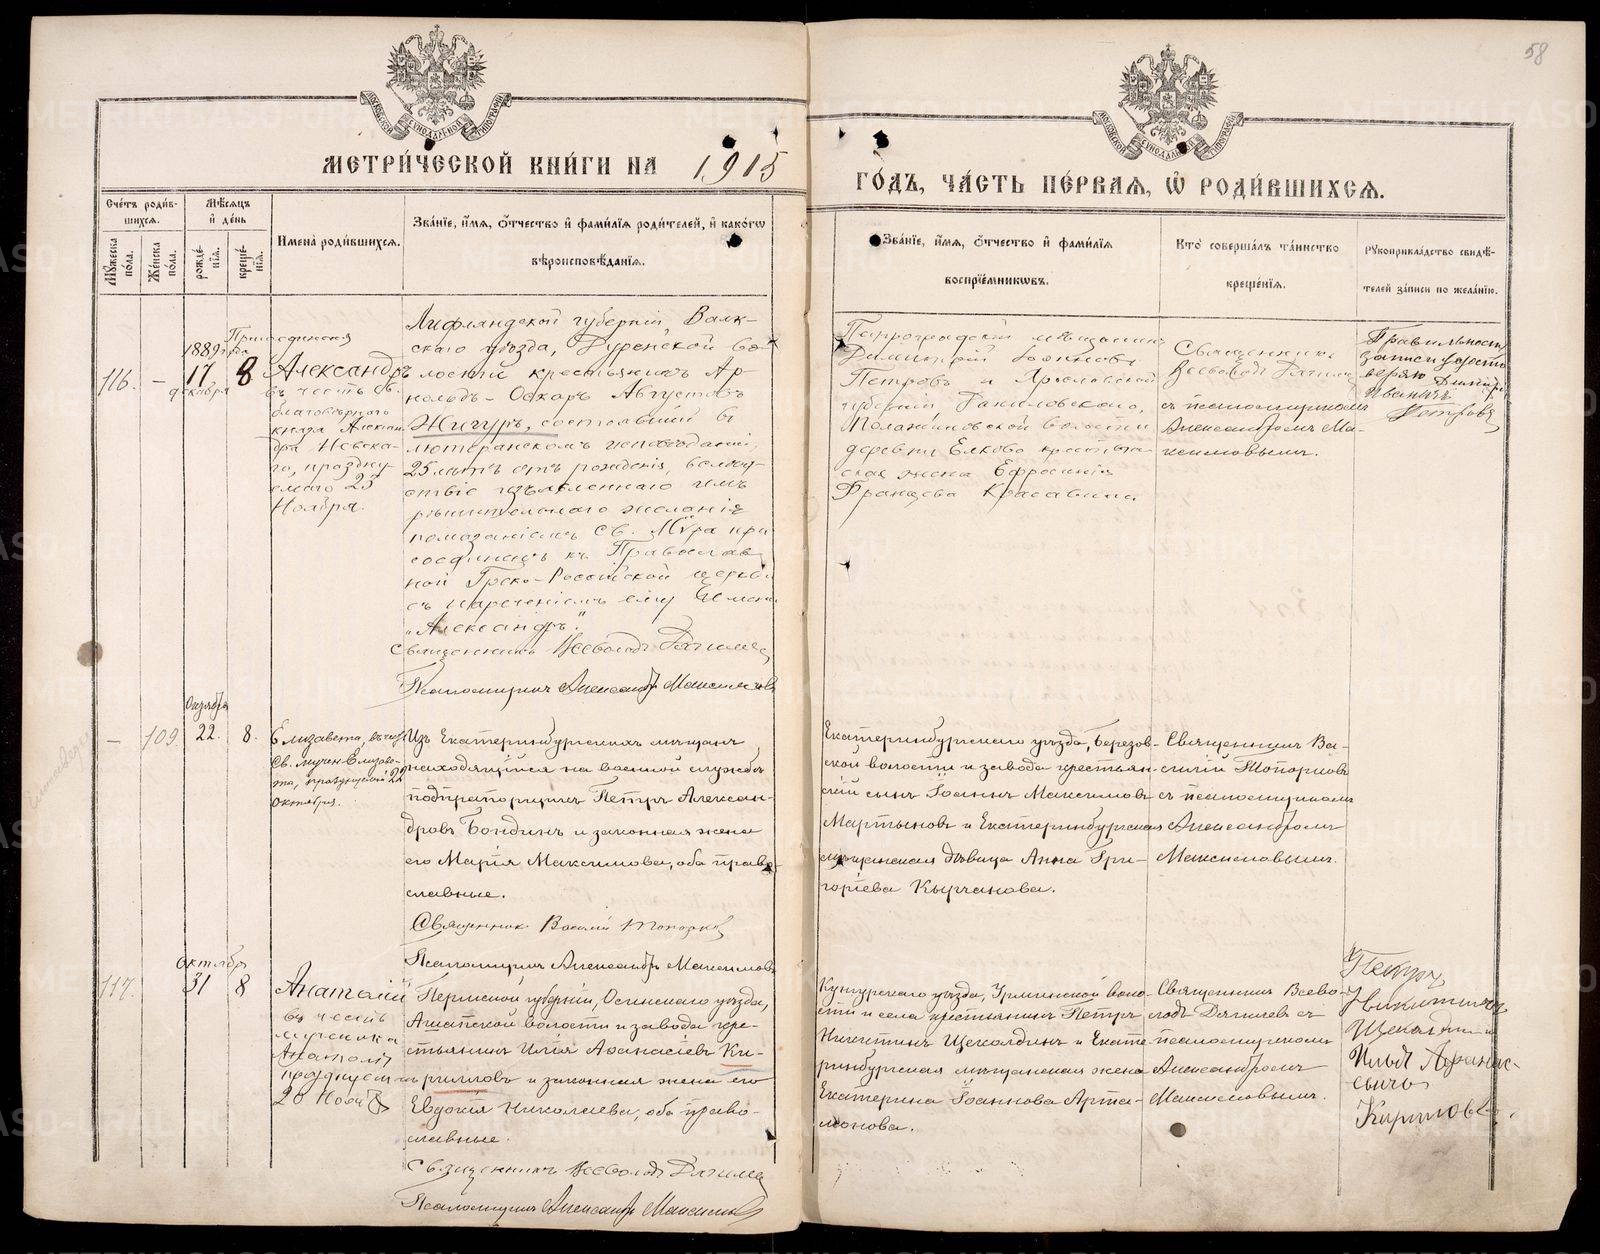 58
МОСКОВСКОЙ СѴНОДАЛЬНОЙ ТИПОГРАФІИ
МОСКОВСКОЙ СѴНОДАЛЬНОЙ ТИПОГРАФІИ
МЕТРИ́ЧЕСКОЙ КНИ́ГИ НА 1915
ГО́ДЪ, ЧА́СТЬ ПЕ́РВАЯ, Ѡ҆ РОДИ́ВШИХСЯ.
Сче́тъ роди́вшихся.
Мꙋ́жеска по́ла.
Же́нска по́ла.
Мѣ́сяцъ и҆ де́нь
рожде́нїя.
креще́нїя.
Имена̀ роди́вшихся.
Зва́нїе, и҆́мя, ѻ҆́тчество и҆ фами́лїя роди́телей, и҆ како́гѡ
вѣроисповѣ́данїя.
Зва́нїе, и҆́мя, ѻ҆́тчество и҆ фами́лїя
воспрїе́мникѡвъ.
Кто̀ соверша́лъ та́инство
креще́нїя.
Рꙋкоприкла́дство свидѣ́-
телей за́писи по жела́нїю.
116.
—
1889 года
17
декабря
8
Присоединенія
Александръ
въ честь св.
благовѣрнаго
князя Алексан
дра Невска-
го, праздну-
емаго 23
Ноября.
Лифляндской губерніи, Валк-
скаго уѣзда, Дуренской во-
лости крестьянинъ Ар-
нольдъ-Оскаръ Августовъ
Жигуръ, состоявшій въ
лютеранскомъ исповѣданіи,
25 лѣтъ отъ рожденія, вслѣд-
ствіе изъявленнаго имъ
рѣшительнаго желанія
помазаніемъ Св. Мѵра при
соединенъ къ Православ
ной Греко-Россійской церкви
съ нареченіемъ ему имени
„Александръ".
Священникъ Всеволодъ
Псаломщикъ Александръ Максимовъ
Петроградскій мѣщанинъ
Димитрій Іоанновъ
Петровъ и Ярославской
губерніи, Даниловскаго,
волости
деревни Елково крестьян
ская жена Ефросинія
Францева Красавина
Священникъ
Всеволодъ
съ псаломщикомъ
Александромъ Ма-
ксимовымъ.
Правильность
записи удосто
веряю Димитрій
Ивановъ
Петровъ
—
109
Октября
22.
8.
Елизавета, въ честь
Св. мучен. Елизаве-
ты, празднуемой 22
октября.
Изъ Екатеринбургскихъ мѣщанъ,
находящійся на военной службѣ
подпрапорщикъ Петръ Алексан-
дровъ Бондинъ и законная жена
его Марія Максимова, оба право-
славные.
Священник Василій Топорков
Псаломщикъ Александръ Максимовъ
Екатеринбургскаго уѣзда, Березов-
ской волости и завода крестьян-
скій сынъ Іоаннъ Максимовъ
Мартыновъ и Екатеринбургская
мѣщанская дѣвица Анна Гри-
горіева Кырчанова.
Священникъ Ва-
силій Топорковъ
съ псаломщикомъ
Александромъ
Максимовымъ.
117.
октября
31
8
Анатолій
въ честь
мученика
Анатолія
празднуемаго
20 Ноября
Пермской губерніи, Осинскаго уѣзда,
Ашапской волости и завода кре-
стьянинъ Илія Аѳанасіевъ Ки-
рилловъ и законная жена его
Евдокія Николаева, оба право-
славные.
Священникъ Всеволодъ
Псаломщикъ Александръ Максимовъ
Кунгурскаго уѣзда, Урминской воло-
сти и села крестьянинъ Петръ
Никитинъ Щекалдинъ и Екате-
ринбургская мѣщанская жена
Екатерина Іоаннова Арта-
монова.
Священникъ Всево-
лодъ съ
псаломщикомъ
Александромъ
Максимовымъ.
Петръ
Никитичъ
Щекалдинъ
Илья Афанас-
сьичъ
Кириловъ.